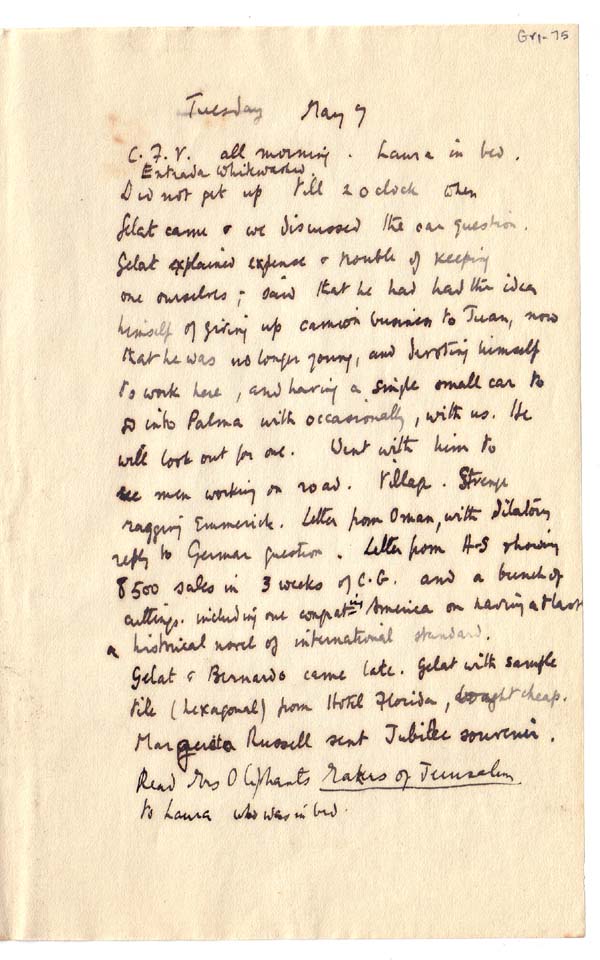 Gr1-75
Tuesday May 7
C.F.V. all morning. Laura in bed.
Entrada whitewashed.
Did not get up till 2 o clock when
Gelat came & we discussed the car question.
Gelat explained expense & trouble of keeping
one ourselves; said that he had had the idea
himself of giving up camion business to Juan, now
that he was no longer young, and devoting himself
to work here, and having a single small car to
go into Palma with occasionally, with us. He
will look out for one. Went with him to
see men working on road. Village. Strenge
ragging Emmerick. Letter from Oman, with dilatory
reply to German question. Letter from A-S showing
8500 sales in 3 weeks of C.G. and a bunch of
cuttings. including one congrating America on having at last
a historical novel of international standard.
Gelat & Bernardo came late. Gelat with sample
tile (hexagonal) from Hotel Florida, bought cheap.
Margarita Russell sent Jubilee souvenir.
Read Mrs Oliphants Makers of Jerusalem
to Laura who was in bed.